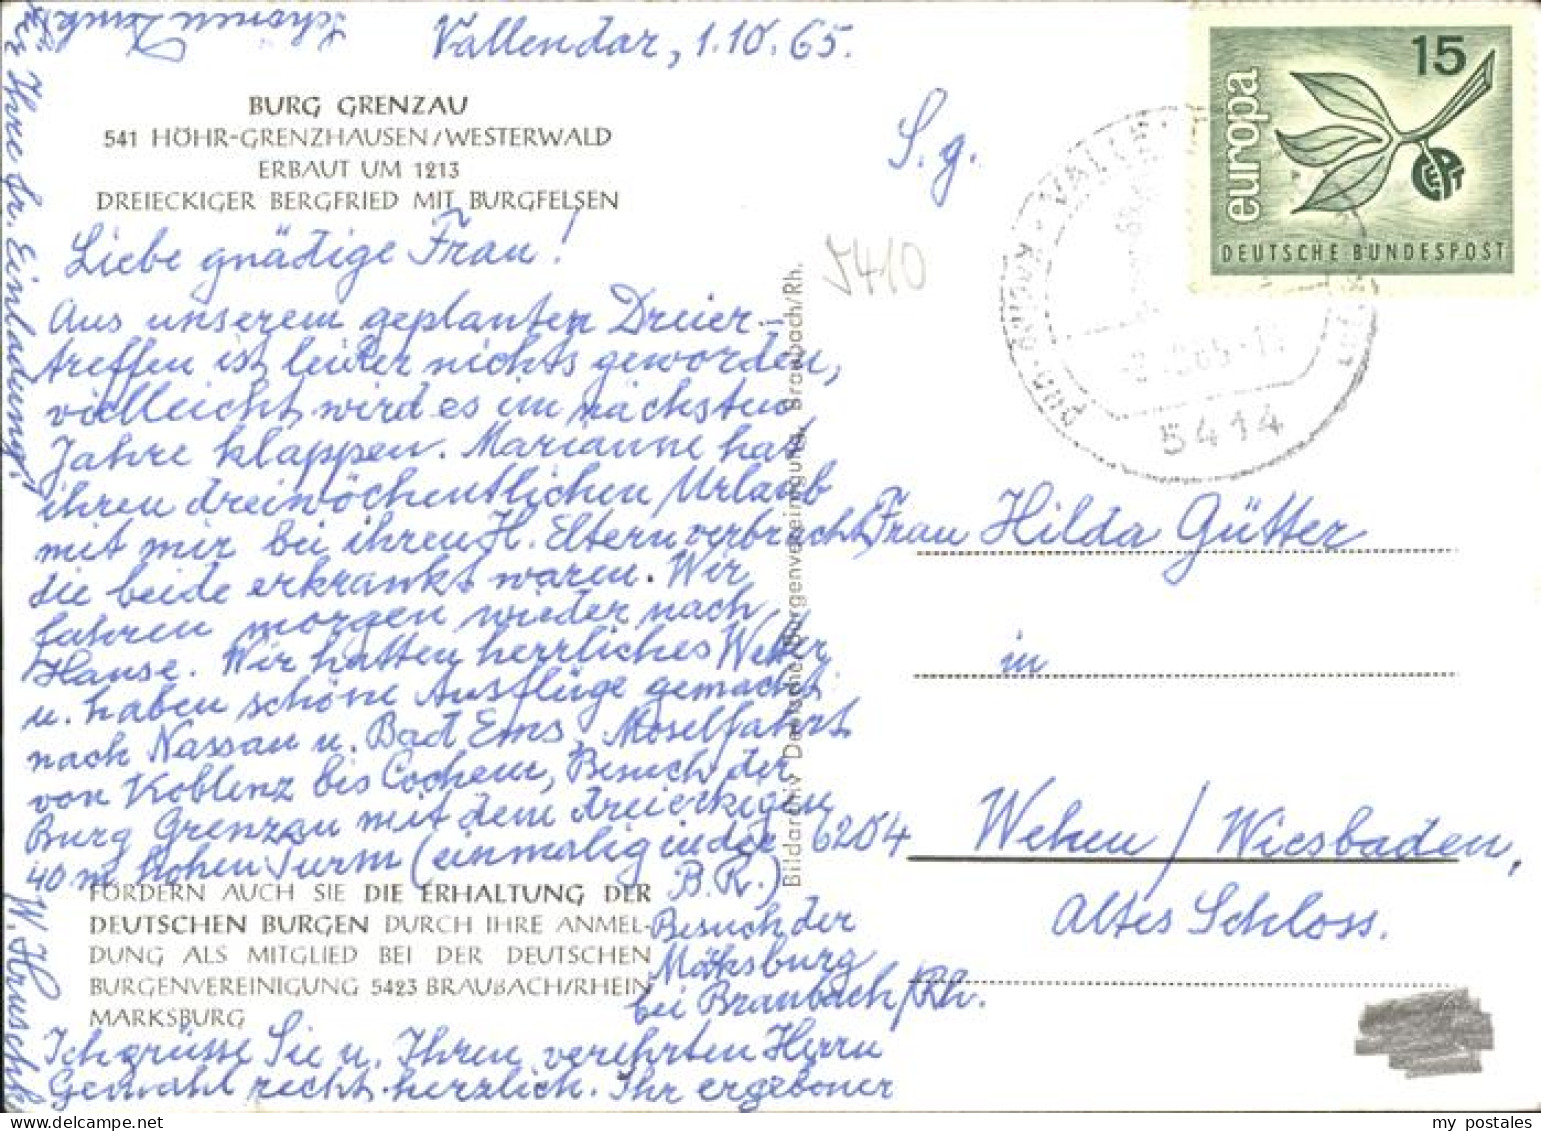 Schönen Dank
für Ihre fr. Einladung!
Vallendar, 1.10.65.
BURG GRENZAU
541 HÖHR-GRENZHAUSEN/WESTERWALD
ERBAUT UM 1213
DREIECKIGER BERGFRIED MIT BURGFELSEN
Liebe gnädige Frau!
Aus unserem geplanten Dreier-
treffen ist leider nichts geworden,
vielleicht wird es im nächsten
Jahre klappen. Marianne hat
ihren dreiwöchentlichen Urlaub
mit mir bei ihren H. Eltern verbracht,
die beide erkrankt waren. Wir
fahren morgen wieder nach
Hause. Wir hatten herrliches Wetter
u. haben schöne Ausflüge gemacht:
nach Nassau u. Bad Ems, Moselfahrt
von Koblenz bis Cochem, Besuch der
Burg Grenzau mit dem dreieckigen
40 m hohen Turm (einmalig in der
B.R.)
Besuch der
Marksburg
bei Braubach/Rh.
Ich grüsse Sie u. Ihren verehrten Herrn
Gemahl recht herzlich. Ihr ergebener
W.
FÖRDERN AUCH SIE DIE ERHALTUNG DER
DEUTSCHEN BURGEN DURCH IHRE ANMEL-
DUNG ALS MITGLIED BEI DER DEUTSCHEN
BURGENVEREINIGUNG 5423 BRAUBACH/RHEIN
MARKSBURG
Bildarchiv Deutsche Burgenvereinigung, Braubach/Rh.
S. g.
5410
europa
15
CEPT
DEUTSCHE BUNDESPOST
5414
Frau Hilda Gütter
in
6204 Wehen / Wiesbaden,
Altes Schloss.
my postales